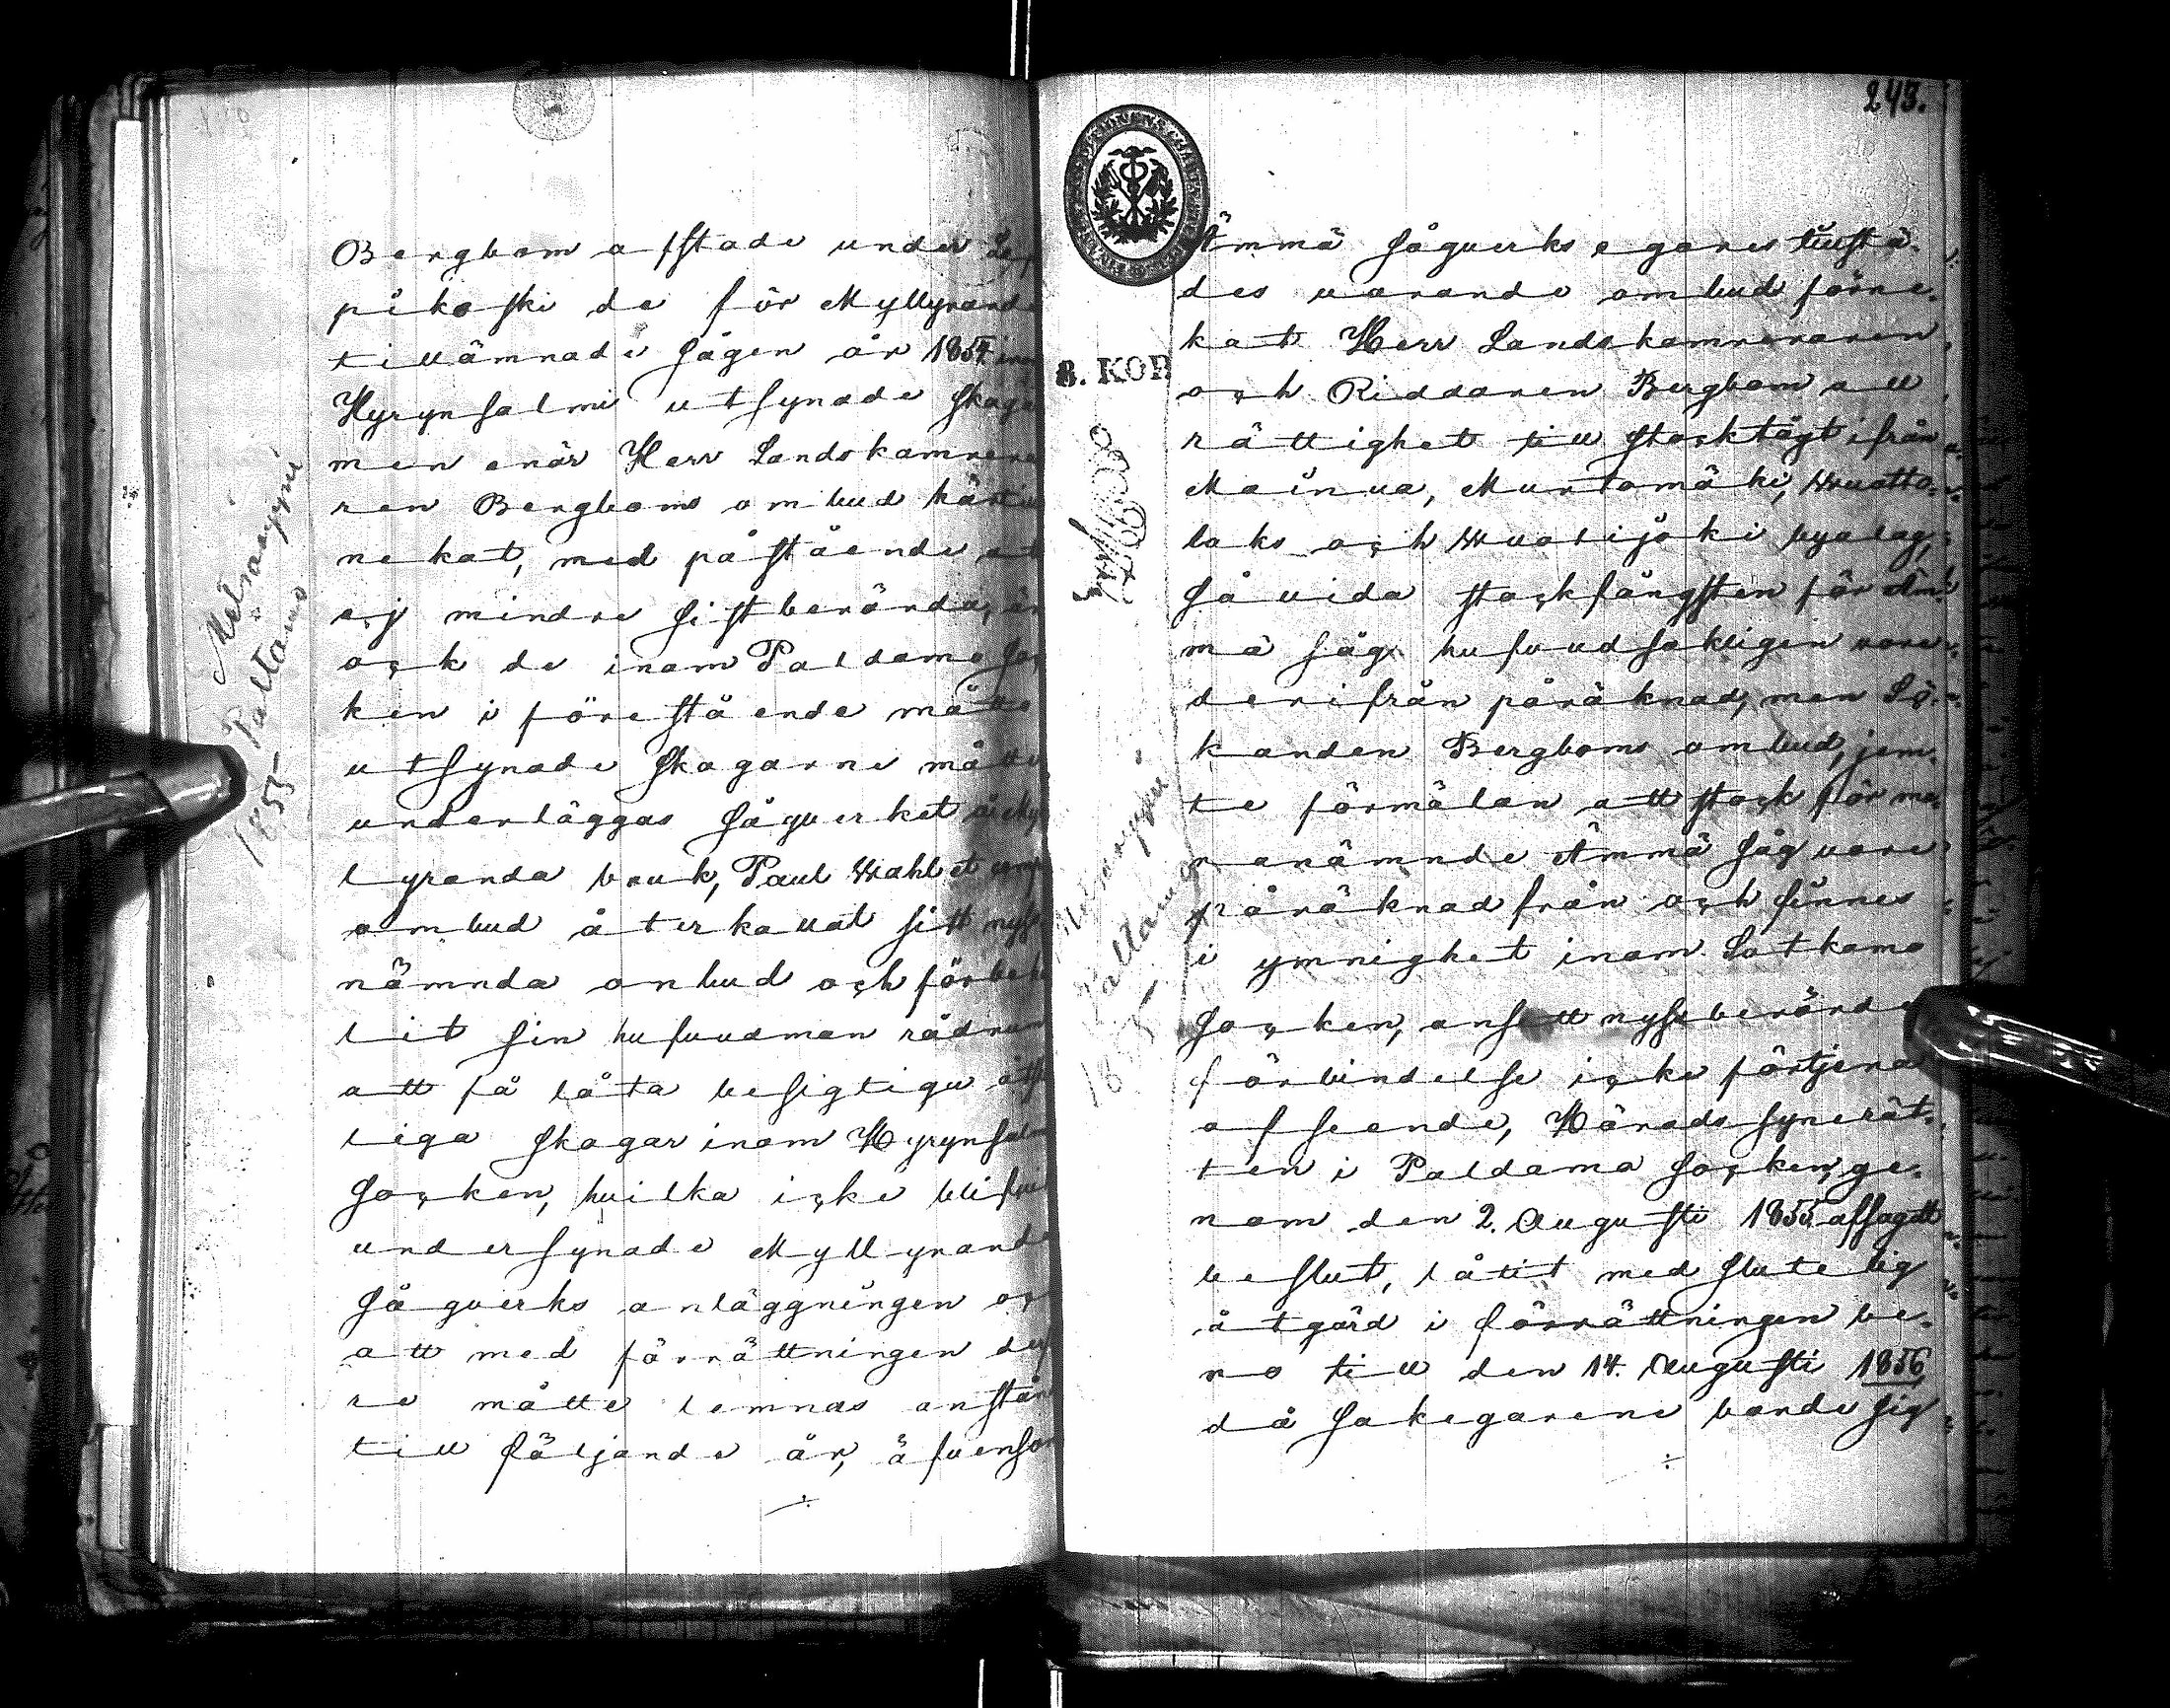 Bergbom afstade under Lep
pikoski de för Myllyranda
tillämnade sågen år 1854 inom
Hyrynsalmi utsynade skogar
men enär Herr Landskamrera
ren Bergboms ombud härtill
nekat, med påstående att
ej mindre sistberörda, än
ock de inom Paldamo Soc
ken i förestående måtto
utsynade skogarne måtte
underläggas sågverket å Myl
lyranda bruk, Paul Wahl et comp
ombud återkallat sitt nyss
nämnda anbud och förbehål
lit sin hufvudman rådrum
att få låta besigtiga
liga skogar inom Hyrynsalmi
Socken, hvilka icke blifvit
undersynade Myllyranda
sågverks anläggningen och
att med förrättningen dess
re måtte lemnas anstånd
till följande år, äfvensom
Melarappni
Paltamo
1855
243.
8. KOP
Ämmä sågverks egares tillstä-
des varande ombud förne-
kat Herr Landskamreraren
och Riddaren Bergbom all
rättighet till stocktägt ifrån
Mainua, Murtomäki, Wuotto-
laks och Wuolijoki byalag,
så vida stockfångsten för Äm-
mä såg hufvudsakligen vore
derifrån påräknad, men Sö-
kanden Bergboms ombud, jem-
te förmälan att stock för me-
ranämnde Ämmä såg vore
påräknad från och finnes
i ymnighet inom Sotkamo
Socken, ansett nyssberörde
förbindelse icke förtjena
afseende, Härads synerät-
ten i Paldamo Socken, ge-
nom den 2. Augusti 1855 afsagdt
beslut, låtit med slutelig
åtgärd i förrättningen be-
ro till den 14. Augusti 1856,
då sakegarene borde sig